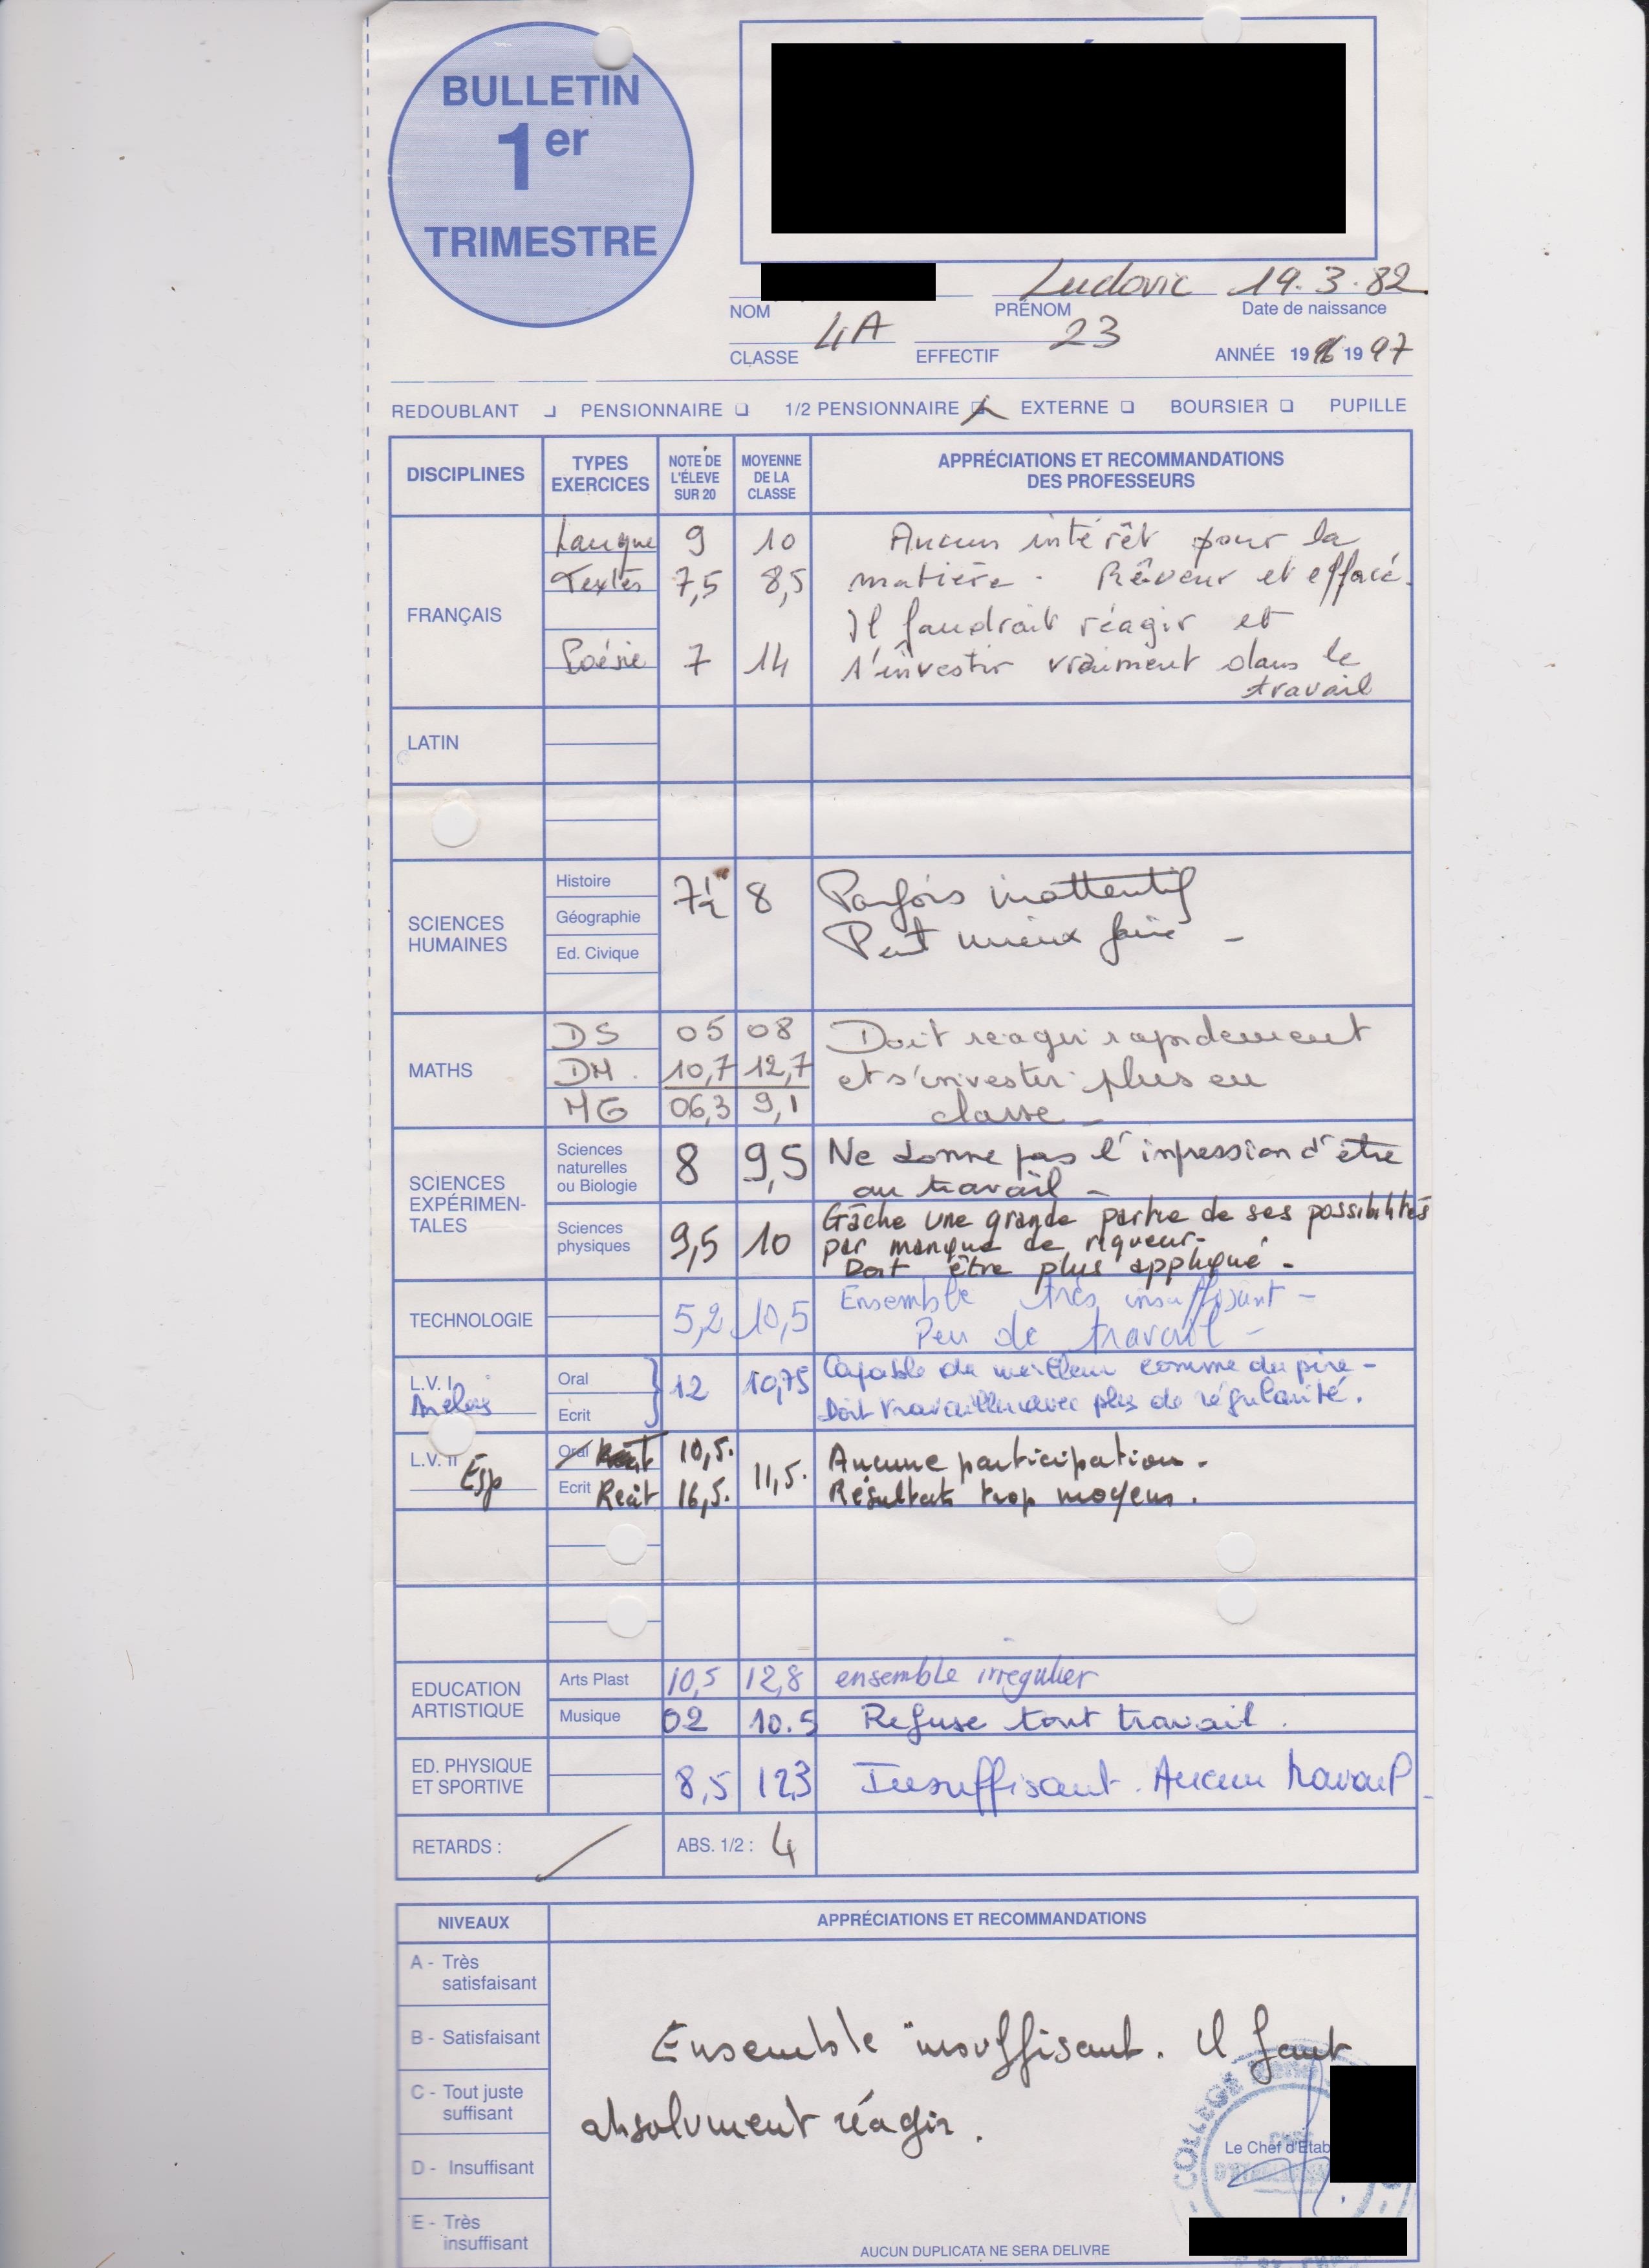 BULLETIN
1er
TRIMESTRE
Ludovic 19.3.82
NOM PRÉNOM Date de naissance
4A 23
CLASSE EFFECTIF ANNÉE 1996 1997
REDOUBLANT PENSIONNAIRE 1/2 PENSIONNAIRE EXTERNE BOURSIER PUPILLE
DISCIPLINES TYPES EXERCICES NOTE DE L'ÉLEVE SUR 20 MOYENNE DE LA CLASSE APPRÉCIATIONS ET RECOMMANDATIONS DES PROFESSEURS
FRANÇAIS
Langue 9 10 Aucun intérêt pour la
Textes 7,5 8,5 matière. Rêveur et effacé.
Il faudrait réagir et
Poésie 7 14 s'investir vraiment dans le
travail
LATIN
SCIENCES HUMAINES
Histoire 7 1/2 8 Parfois inattentif
Géographie Peut mieux faire -
Ed. Civique
MATHS
DS 05 08 Doit réagir rapidement
DM. 10,7 12,7 et s'investir plus en
MG 06,3 9,1 classe -
SCIENCES EXPÉRIMEN-TALES
Sciences naturelles ou Biologie 8 9,5 Ne donne pas l'impression d'être
au travail -
Sciences physiques 9,5 10 Gâche une grande partie de ses possibilités
par manque de rigueur.
Doit être plus appliqué -
TECHNOLOGIE 5,2 10,5 Ensemble très insuffisant -
Peu de travail -
L.V. I Anglais Oral Ecrit 12 10,75 Capable du meilleur comme du pire -
Doit travailler avec plus de régularité.
L.V. II Esp Oral 10,5. 11,5. Aucune participation.
Ecrit 16,5. Résultats trop moyens.
EDUCATION ARTISTIQUE
Arts Plast 10,5 12,8 ensemble irregulier
Musique 02 10.5 Refuse tout travail.
ED. PHYSIQUE ET SPORTIVE 8,5 12,3 Insuffisant. Aucun travail -
RETARDS : / ABS. 1/2 : 4
NIVEAUX APPRÉCIATIONS ET RECOMMANDATIONS
A - Très satisfaisant
B - Satisfaisant
C - Tout juste suffisant
D - Insuffisant
E - Très insuffisant
Ensemble insuffisant. Il faut
absolument réagir.
COLLEGE
Le Chef d'Etab
AUCUN DUPLICATA NE SERA DELIVRE